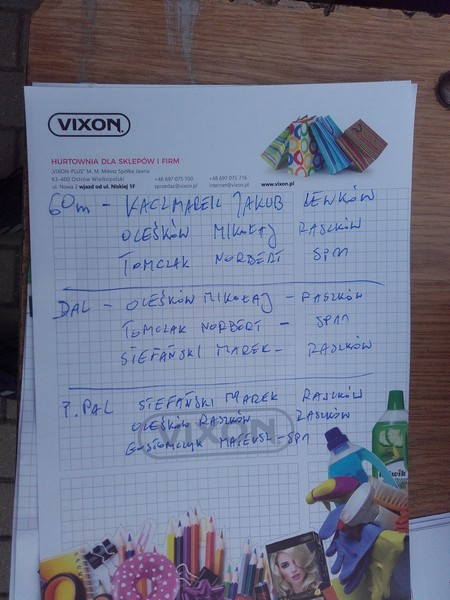 VIXON
HURTOWNIA DLA SKLEPÓW I FIRM
„VIXON PLUS” M. M. Miłosz Spółka Jawna
63-400 Ostrów Wielkopolski +48 697 075 700 +48 697 075 776
ul. Nowa 2 wjazd od ul. Niskiej 1F sprzedaz@vixon.pl internet@vixon.pl www.vixon.pl
60m - KACZMAREK JAKUB LEWKÓW
OLEŚKÓW MIKOŁAJ RASZKÓW
TOMCZAK NORBERT SP11
DAL - OLEŚKÓW MIKOŁAJ - RASZKÓW
TOMCZAK NORBERT - SP11
STEFAŃSKI MAREK - RASZKÓW
P. PAL STEFAŃSKI MAREK RASZKÓW
OLEŚKÓW RASZKÓW RASZKÓW
MATEUSZ - SP11
VIXON